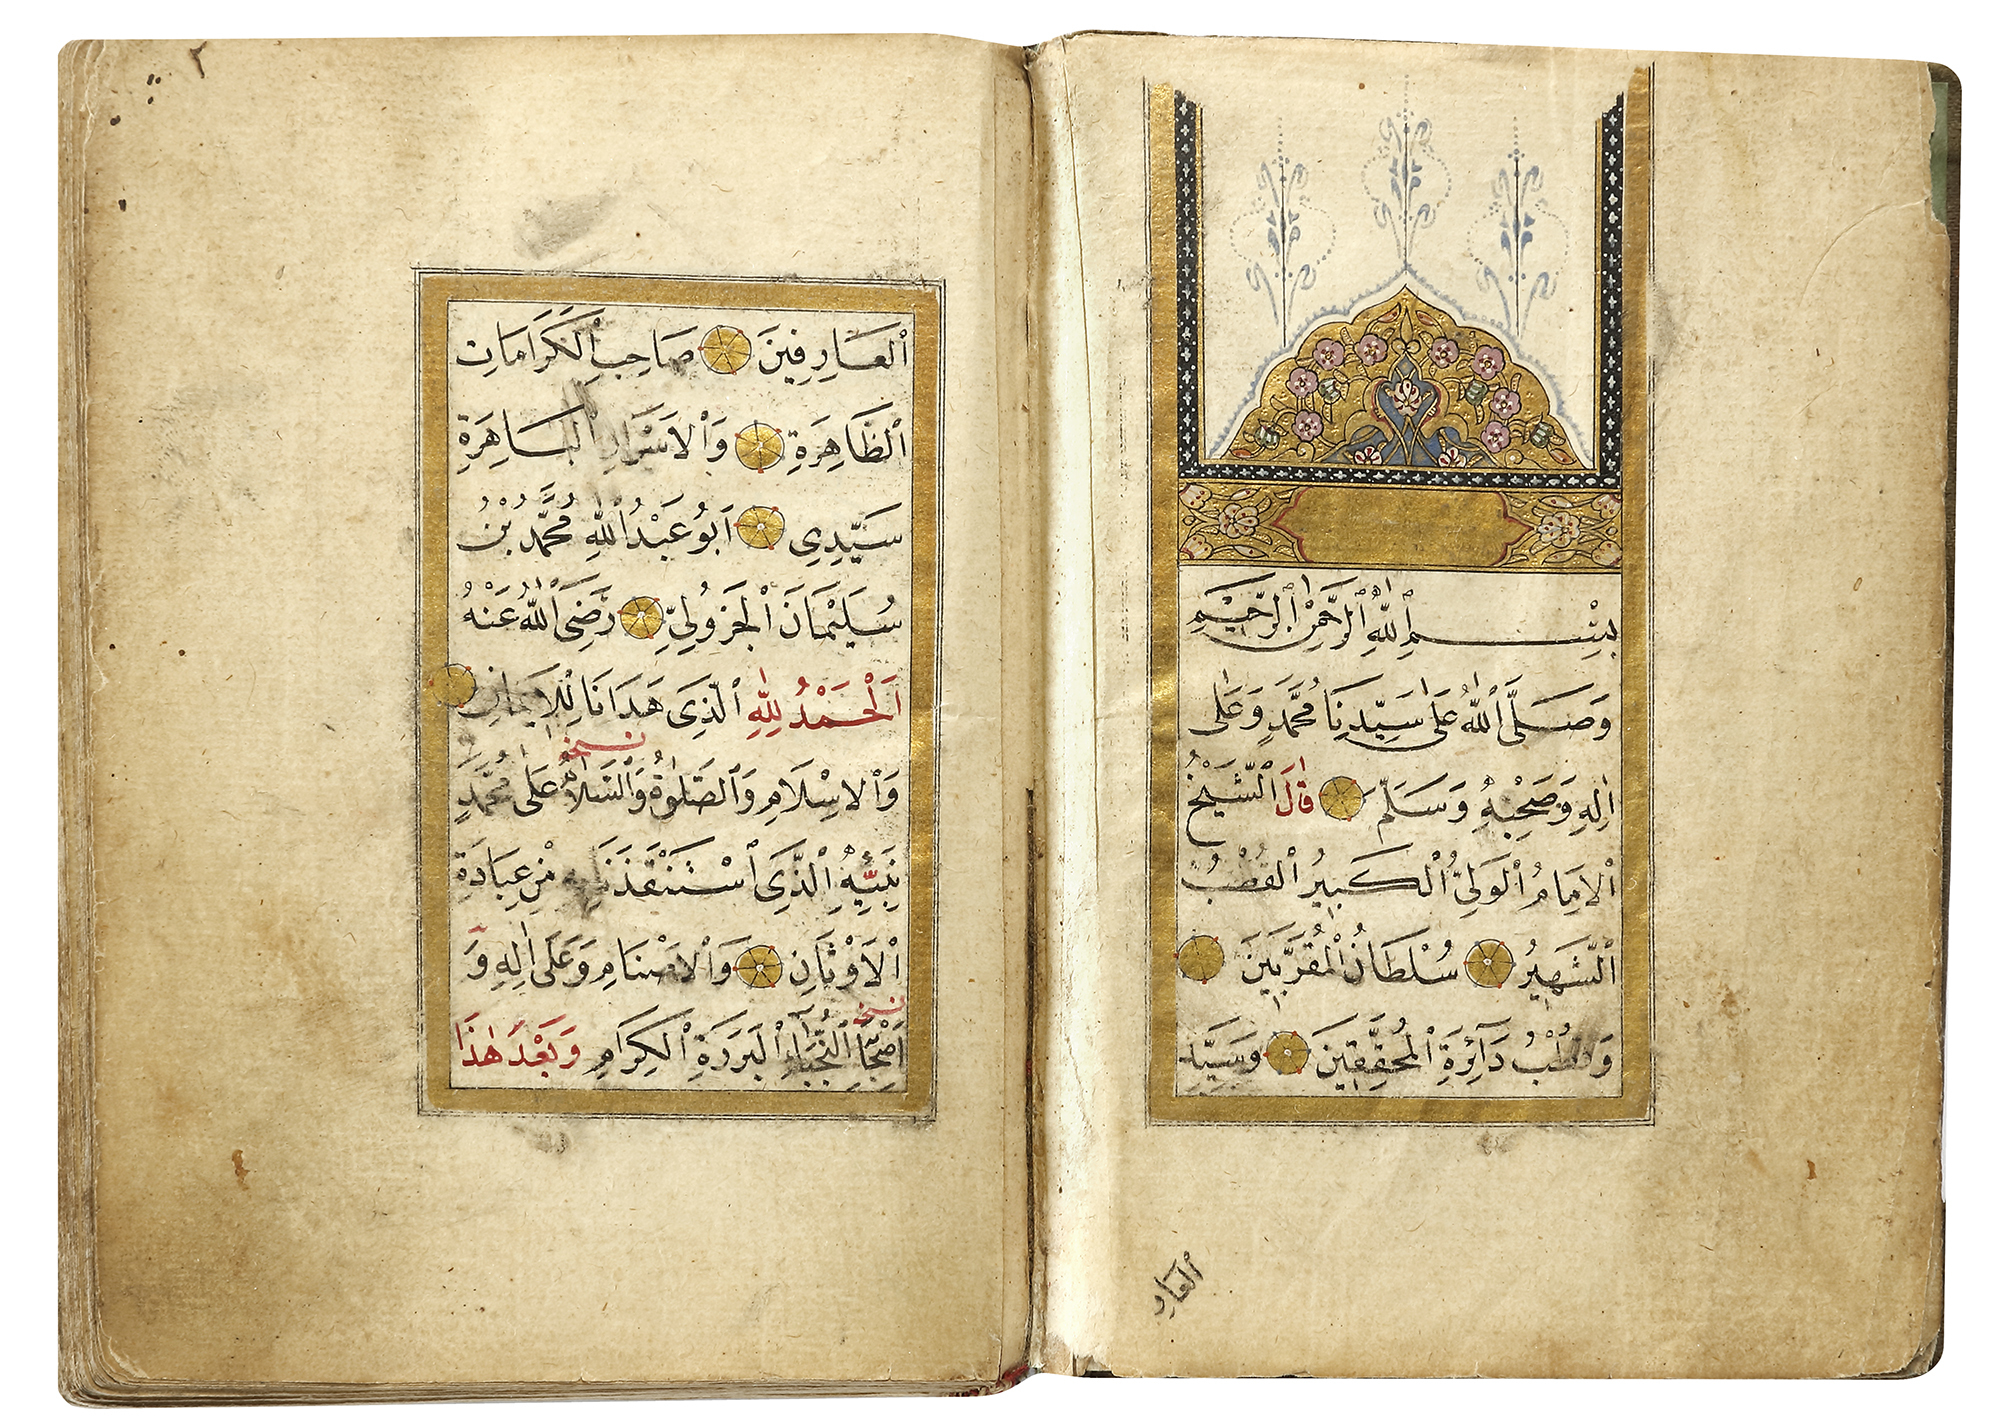 بِسْمِ ٱللّٰهِ ٱلرَّحْمٰنِ ٱلرَّحِيمِ
وَصَلَّى ٱللّٰهُ عَلٰى سَيِّدِنَا مُحَمَّدٍ وَعَلٰى
اٰلِهِ وَصَحْبِهِ وَسَلَّمَ قَالَ ٱلشَّيْخُ
ٱلْاِمَامُ ٱلْوَلِيُّ ٱلْكَبِيرُ ٱلْقُطْبُ
ٱلشَّهِيرُ سُلْطَانُ ٱلْمُقَرَّبِينَ
وَقُطْبُ دَآئِرَةِ ٱلْمُحَقِّقِينَ وَسَيِّدِ
ٱلعَارِ
٢
ٱلْعَارِفِينَ صَاحِبِ ٱلْكَرَامَاتِ
ٱلظَّاهِرَةِ وَٱلْاَسْرَارِ ٱلْبَاهِرَةِ
سَيِّدِي اَبُو عَبْدُ ٱللّٰهِ مُحَمَّدُ بْنُ
سُلَيْمَانَ ٱلْجَزُولِيِّ رَضِيَ ٱللّٰهُ عَنْهُ
اَلْحَمْدُ لِلّٰهِ ٱلَّذِى هَدَانَا لِلْاِيمَانِ
نسخه
وَٱلْاِسْلَامِ وَٱلصَّلٰوةُ وَٱلسَّلَامُ عَلٰى مُحَمَّدٍ
نَبِيِّهِ ٱلَّذِى ٱسْتَنْقَذَنَا بِهِ مِنْ عِبَادَةِ
ٱلْاَوْثَانِ وَٱلْاَصْنَامِ وَعَلٰى اٰلِهِ وَ
نسخه
اَصْحَابِهِ ٱلنُّجَبَآءِ ٱلْبَرَرَةِ ٱلْكِرَامِ وَبَعْدَ هٰذَا